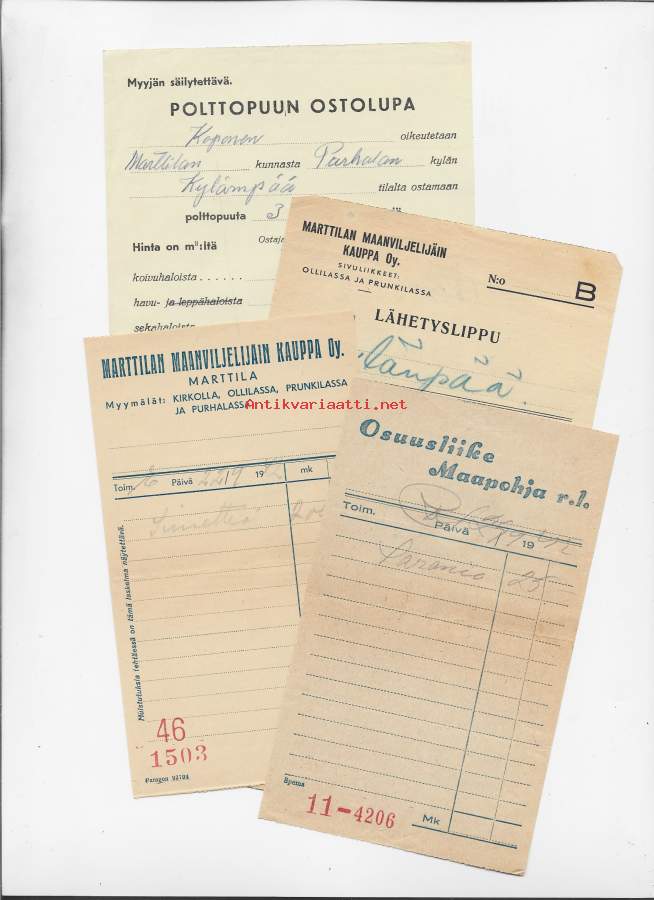 Myyjän säilytettävä.
POLTTOPUUN OSTOLUPA
Koponen oikeutetaan
Marttilan kunnasta Purhalan kylän
Kylämpää tilalta ostamaan
polttopuuta 3
Hinta on m³:ltä Ostaja
koivuhaloista . . . . . .
havu- ja leppähaloista
sekahaloista
MARTTILAN MAANVILJELIJÄIN
KAUPPA Oy.
SIVULIIKKEET:
OLLILASSA JA PRUNKILASSA
N:o B
LÄHETYSLIPPU
MARTTILAN MAANVILJELIJÄIN KAUPPA Oy.
MARTTILA
Myymälät: KIRKOLLA, OLLILASSA, PRUNKILASSA
JA PURHALASSA
Antikvariaatti.net
Toim. Päivä 22/9 19 mk
Muistutuksia tehtäessä on tämä laskelma näytettävä.
46
1503
Paragon 93704
Osuusliike
Maapohja r.l.
Toim. Päivä 19
25
Sperna
11-4206 Mk